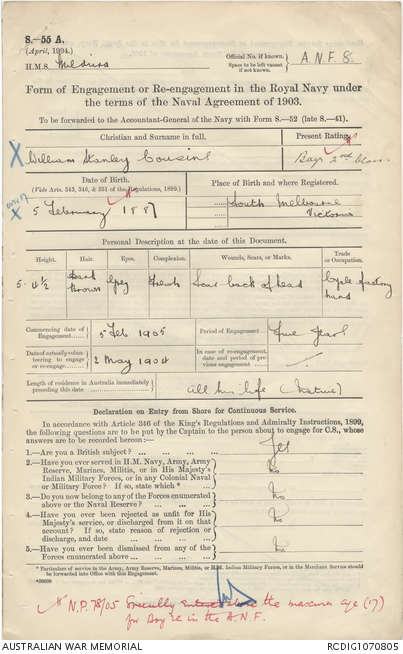 S.—55 A.
(April, 1904.)
H.M.S. Medusa
Official No. if known.
Space to be left vacant
if not known.
A.N.F 8.
Form of Engagement or Re-engagement in the Royal Navy under
the terms of the Naval Agreement of 1903.
To be forwarded to the Accountant-General of the Navy with Form S.—52 (late S.—41).
Christian and Surname in full.
Present Rating.
X William Stanley Cousins
Boy 2nd Class
Date of Birth.
(Vide Arts. 343, 346, & 351 of the Regulations, 1899.)
Place of Birth and where Registered.
X 5 February 1887
South Melbourne
Victoria
Personal Description at the date of this Document.
Height.
Hair.
Eyes.
Complexion.
Wounds, Scars, or Marks.
Trade
or Occupation.
5. 4½
Dark
Brown
Grey
Fresh
Scar back of head
Cycle factory
hand
Commencing date of
Engagement
5 Feb 1905
Period of Engagement
Five years
Date of actually volun-
teering to engage
or re-engage
2 May 1904
In case of re-engagement,
date and period of pre-
vious engagement
Length of residence in Australia immediately
preceding this date
All his life (Native)
Declaration on Entry from Shore for Continuous Service.
In accordance with Article 346 of the King's Regulations and Admiralty Instructions, 1899,
the following questions are to be put by the Captain to the person about to engage for C.S., whose
answers are to be recorded hereon:—
1.—Are you a British subject?
Yes
2.—Have you ever served in H.M. Navy, Army, Army
Reserve, Marines, Militia, or in His Majesty's
Indian Military Forces, or in any Colonial Naval
or Military Force? If so, state which *
No
3.—Do you now belong to any of the Forces enumerated
above or the Naval Reserve?
No
4.—Have you ever been rejected as unfit for His
Majesty's service, or discharged from it on that
account? If so, state reason of rejection or
discharge, and date
No
5.—Have you ever been dismissed from any of the
Forces enumerated above
No
* Particulars of service in the Army, Army Reserve, Marines, Militia, or H.M. Indian Military Forces, or in the Merchant Service should
be forwarded into Office with this Engagement.
N.P. 78/05 the maximum age (17)
for Boy 2c in the A.N.F.
AUSTRALIAN WAR MEMORIAL
RCDIG1070805